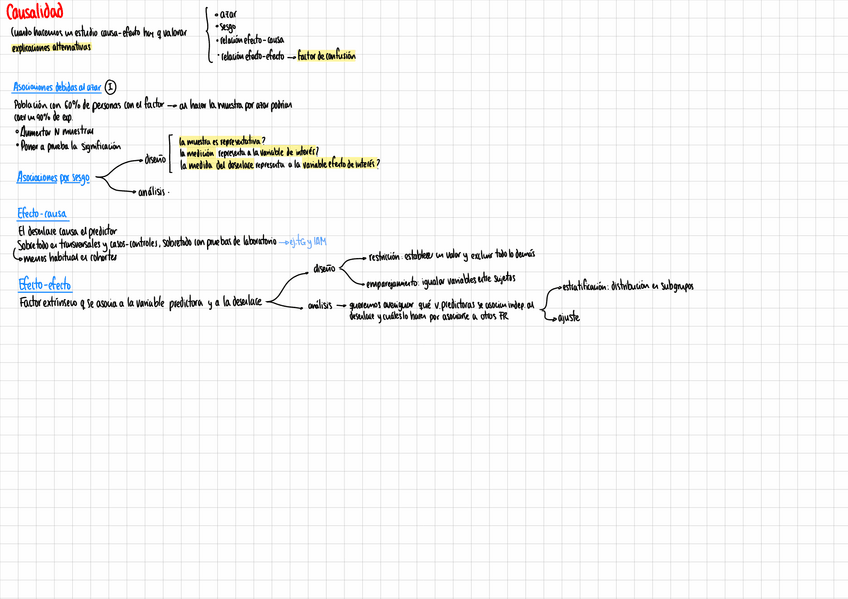 Causalidad
Cuando hacemos un estudio causa-efecto hay q valorar
explicaciones alternativas
• azar
• sesgo
• relación efecto-causa
• relación efecto-efecto → factor de confusión
Asociaciones debidas al azar I
Población con 60% de personas con el factor → al hacer la muestra por azar podrían
caer un 90% de exp.
• Aumentar N muestral
• Poner a prueba la significación
Asociaciones por sesgo
diseño
la muestra es representativa?
la medición representa a la variable de interés?
la medida del desenlace representa a la variable efecto de interés?
análisis.
Efecto-causa
El desenlace causa el predictor
Sobretodo en transversales y casos-controles, sobretodo con pruebas de laboratorio → ej: TG y IAM
→ menos habitual en cohortes
Efecto-efecto
Factor extrínseco q se asocia a la variable predictora y a la desenlace
diseño
restricción: establecer un valor y excluir todo lo demás
emparejamiento: igualar variables entre sujetos
análisis → queremos averiguar qué v. predictoras se asocian indep. al
desenlace y cuáles lo hacen por asociarse a otros FR
estratificación: distribución en subgrupos
ajuste